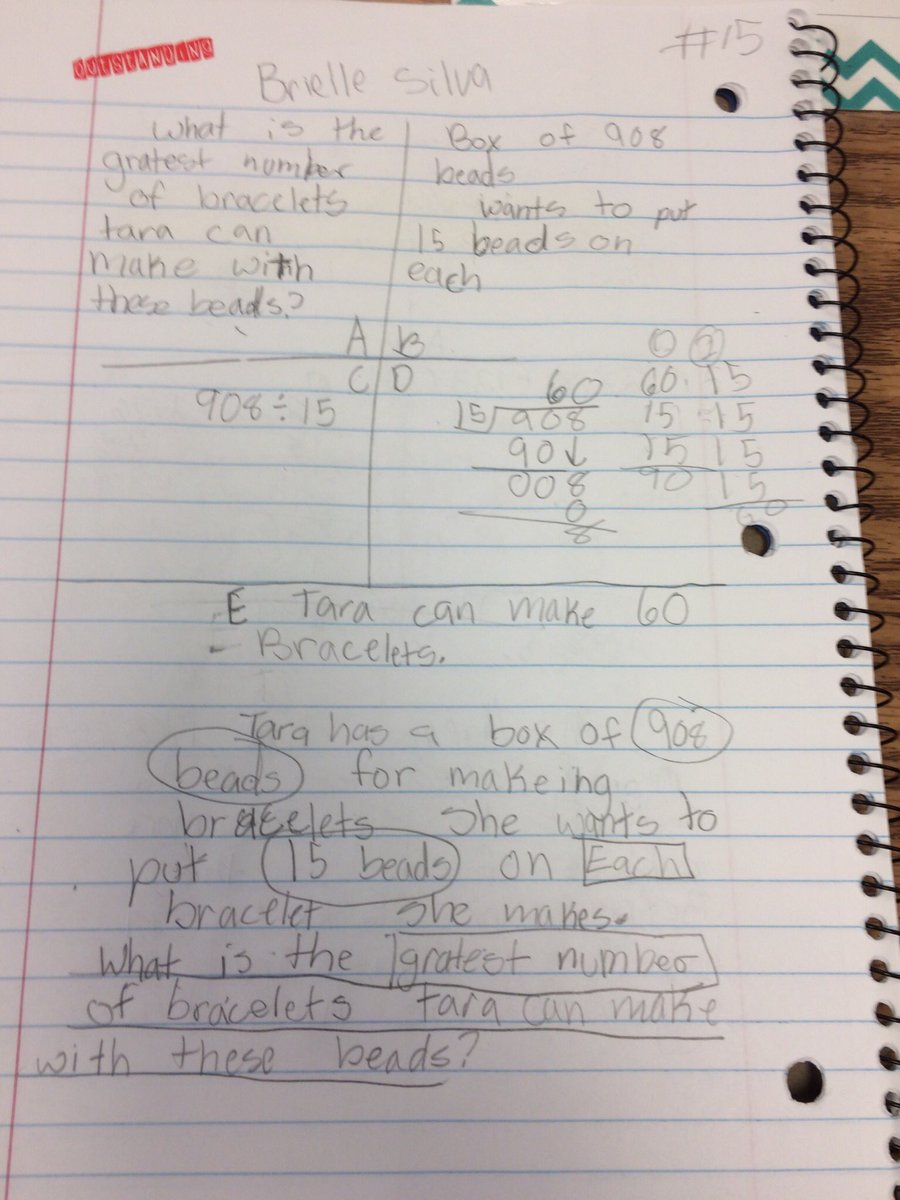 OUTSTANDING
#15
Brielle Silva
What is the
gratest number
of bracelets
tara can
make with
these beads?
Box of 908
beads
wants to put
15 beads on
each
A B
C D
908 ÷ 15
60
15 908
90↓
008
0
8
60
15
15
90
15
15
15
15
60
E Tara can make 60
- Bracelets.
Tara has a box of 908
beads for makeing
bracelets She wants to
put 15 beads on Each
bracelet She makes.
What is the gratest number
of bracelets tara can make
with these beads?